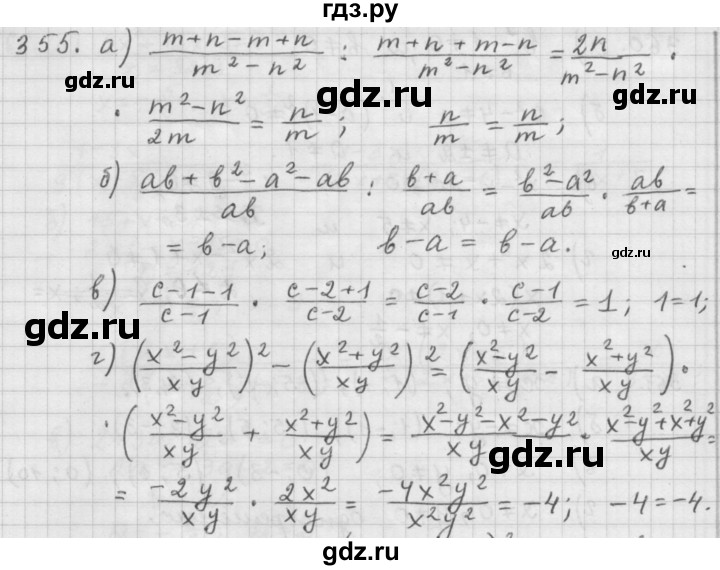 гдз.ру
355. а) (m+n-m+n)/(m²-n²) : (m+n+m-n)/(m²-n²) = 2n/(m²-n²) ·
gdz.ru gdz.ru
· (m²-n²)/2m = n/m ; n/m = n/m ;
б) (ab+b²-a²-ab)/ab : (b+a)/ab = (b²-a²)/ab · ab/(b+a) =
= b-a; b-a = b-a.
gdz.ru
в) (c-1-1)/(c-1) · (c-2+1)/(c-2) = (c-2)/(c-1) · (c-1)/(c-2) = 1; 1=1;
gdz.ru
г) ((x²-y²)/xy)² - ((x²+y²)/xy)² = ((x²-y²)/xy - (x²+y²)/xy) ·
gdz.ru
· ((x²-y²)/xy + (x²+y²)/xy) = (x²-y²-x²-y²)/xy · (x²-y²+x²+y²)/xy =
gdz.ru
= -2y²/xy · 2x²/xy = -4x²y²/x²y² = -4; -4=-4.
gdz.ru
gdz.ru